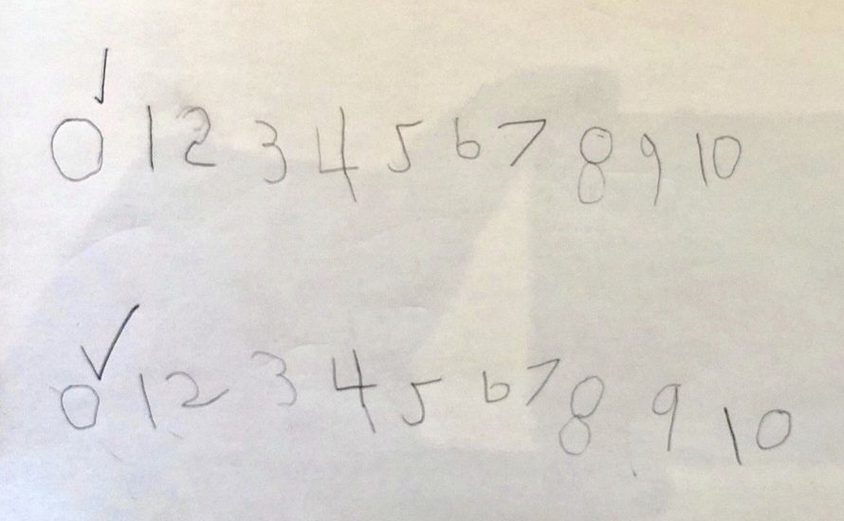 0 1 2 3 4 5 6 7 8 9 10
0 1 2 3 4 5 6 7 8 9 10